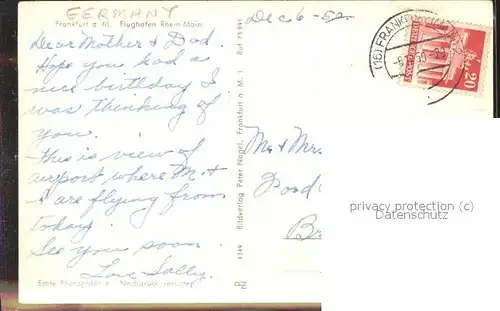 GERMANY
Frankfurt a. M. Flughafen Rhein-Main
Dec 6 - 50
Dear Mother & Dad.
Hope you had a
nice birthday I
was thinking of
you.
This is view of
airport where M. &
I are flying from
today.
See you soon.
Love Sally.
Echte Photographie Nachdruck verboten
4349 Bildverlag Peter Nagel, Frankfurt a. M. 1 Ruf
Mr & Mrs.
Good
Br
(16) FRANKFURT
DEUTSCHE POST
20
privacy protection (c)
Datenschutz